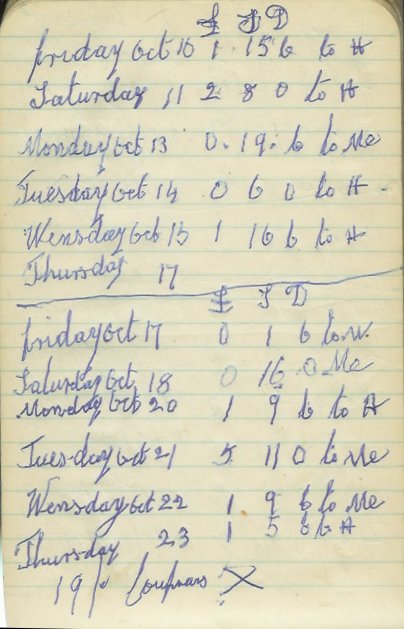 £ S D
Friday Oct 10 1 15 6 to H
Saturday 11 2 8 0 to H
Monday Oct 13 0. 19. 6 to Me
Tuesday Oct 14 0 6 0 to H
Wensday Oct 15 1 16 6 to H
Thursday 17
£ S D
Friday Oct 17 0 1 6 to
Saturday Oct 18 0 16 0 Me
Monday Oct 20 1 9 6 to H
Tuesday Oct 21 5 11 0 to Me
Wensday Oct 22 1 9 6 to Me
Thursday 23 1 5 6 to H
X